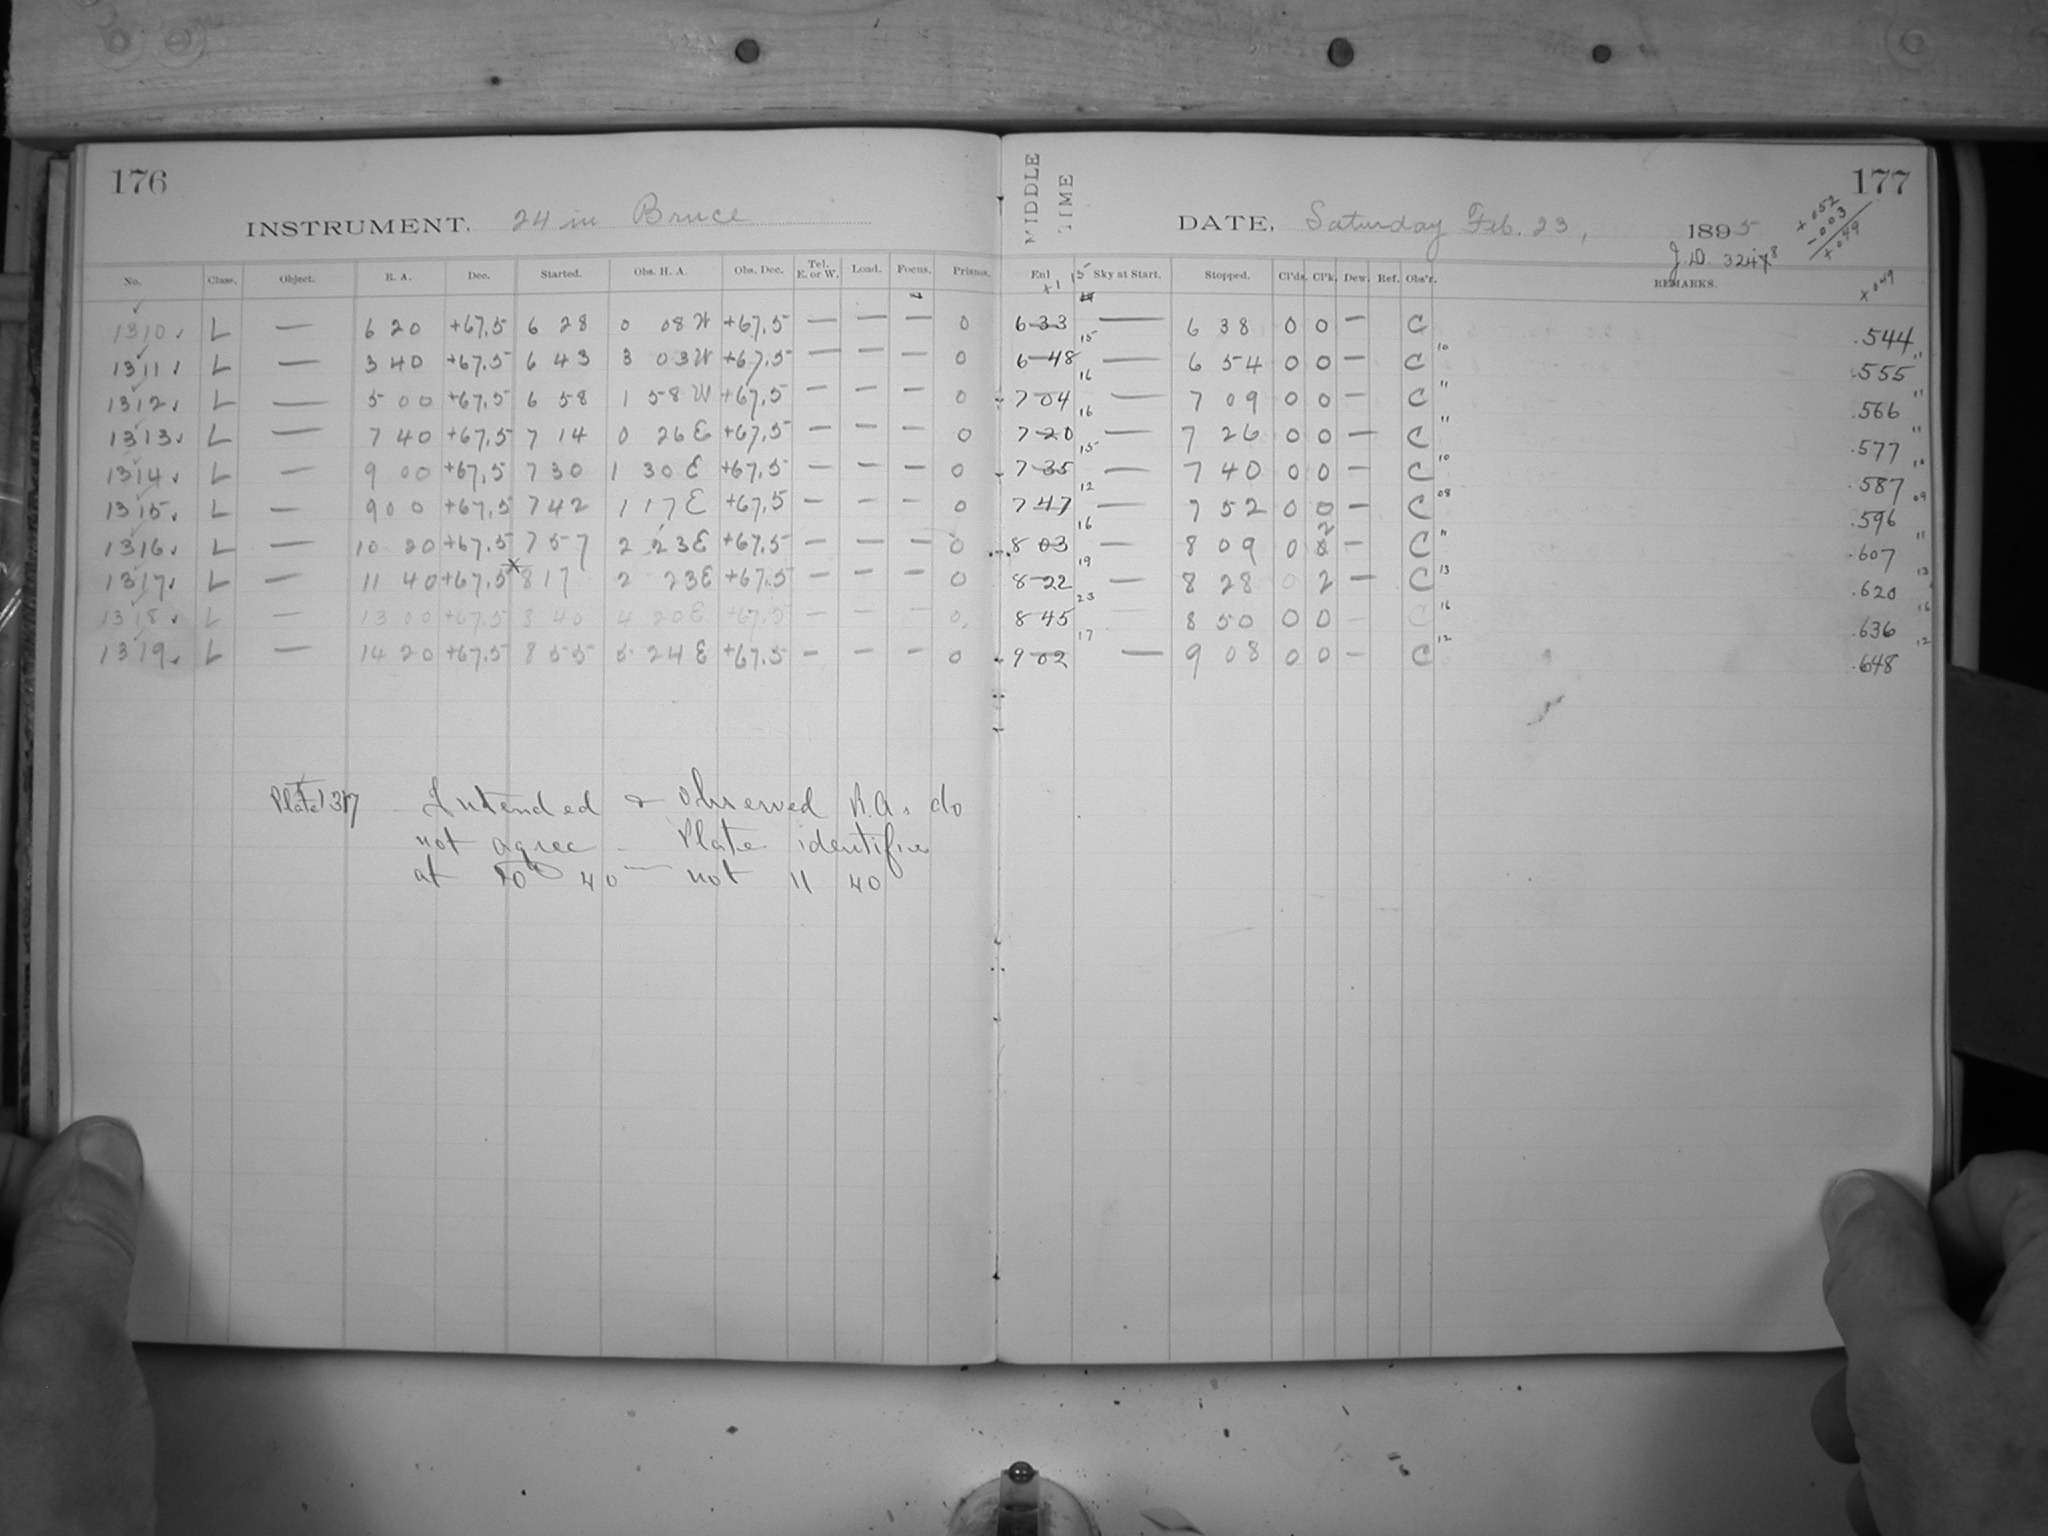 176
INSTRUMENT, 24 in Bruce
No. Class. Object. R. A. Dec. Started. Obs. H. A. Obs. Dec. Tel. E. or W. Load. Focus. Prisms.
1310 L — 6 20 +67.5 6 28 0 08 W +67.5 — — — 0
1311 L — 3 40 +67.5 6 43 3 03 W +67.5 — — — 0
1312 L — 5 00 +67.5 6 58 1 58 W +67.5 — — — 0
1313 L — 7 40 +67.5 7 14 0 26 E +67.5 — — — 0
1314 L — 9 00 +67.5 7 30 1 30 E +67.5 — — — 0
1315 L — 9 00 +67.5 7 42 1 17 E +67.5 — — — 0
1316 L — 10 20 +67.5 7 57 2 23 E +67.5 — — — 0
1317 L — 11 40 +67.5 × 8 17 2 23 E +67.5 — — — 0
1318 L — 13 00 +67.5 8 40 4 20 E +67.5 — — — 0
1319 L — 14 20 +67.5 8 55 5 24 E +67.5 — — — 0
Plate 1317 Intended & Observed R.A. do
not agree — Plate identifies
at 10 40 — not 11 40
177
MIDDLE
TIME
DATE, Saturday Feb. 23, 1895
+052
-003
+049
J.D. 32478
Sky at Start. Stopped. Cl'ds. Cl'k. Dew. Ref. Obs'r. REMARKS. +049
6 33 — 6 38 0 0 — C .544
6 48 15 — 6 54 0 0 — C 10 .555 "
7 04 16 — 7 09 0 0 — C " .566 "
7 20 16 — 7 26 0 0 — C " .577 "
7 35 15 — 7 40 0 0 — C 10 .587 10
7 47 12 — 7 52 0 0 — C 08 .596 09
8 03 16 — 8 09 0 2 — C " .607 "
8 22 19 — 8 28 0 2 — C 13 .620 13
8 45 23 — 8 50 0 0 — C 16 .636 16
9 02 17 — 9 08 0 0 — C 12 .648 12